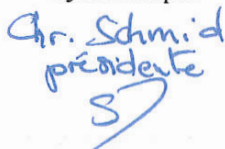 Chr. Schmid
présidente